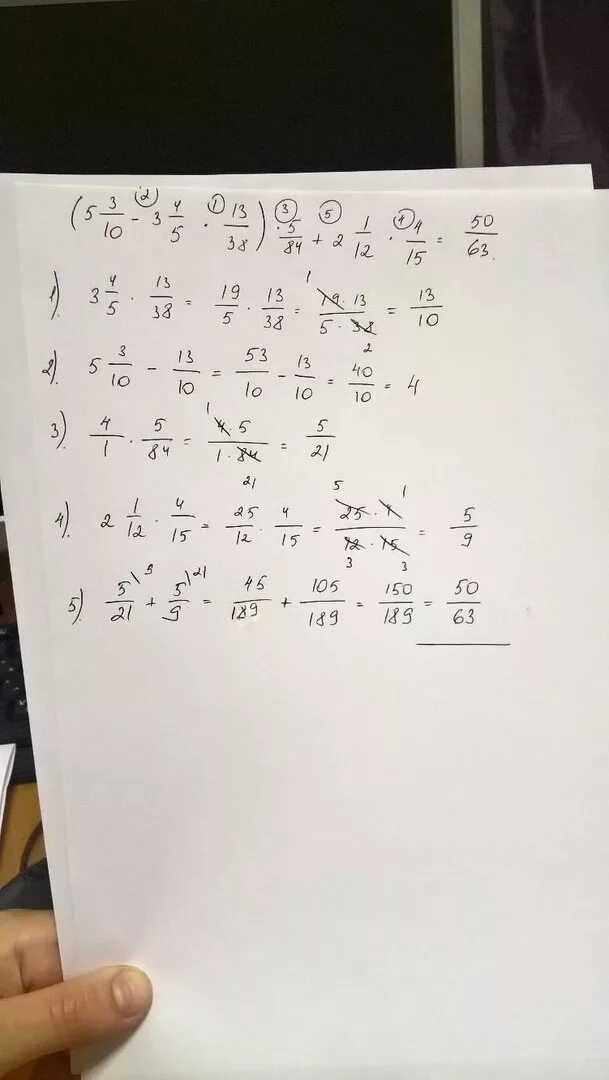 (5 3/10 - ② 3 4/5 · ① 13/38) · ③ 5/84 + ⑤ 2 1/12 · ④ 4/15 = 50/63.
1). 3 4/5 · 13/38 = 19/5 · 13/38 = 1 19·13/5·38 2 = 13/10
2). 5 3/10 - 13/10 = 53/10 - 13/10 = 40/10 = 4
3). 4/1 · 5/84 = 1 4·5/1·84 21 = 5/21
4). 2 1/12 · 4/15 = 25/12 · 4/15 = 5 1 25·4/12·15 3 3 = 5/9
5). 5\9/21 + 5\21/9 = 45/189 + 105/189 = 150/189 = 50/63